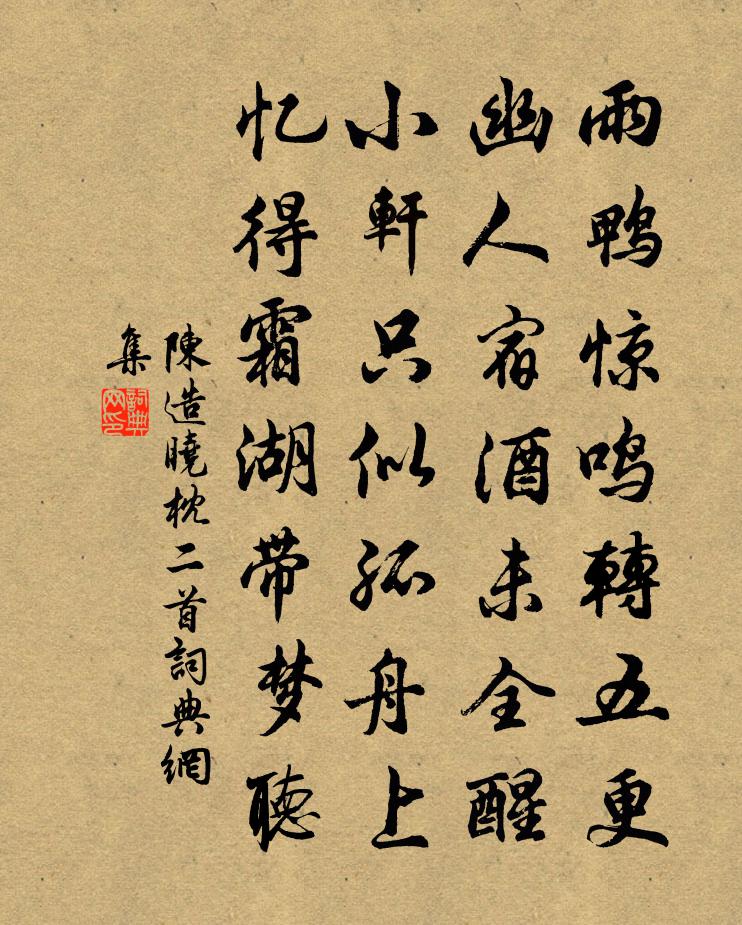 雨鴨惊鸣轉五更
幽人宿酒未全醒
小軒只似孤舟上
忆得霜湖带梦聽
陳造曉枕二首詞典網
集
詞典
网印